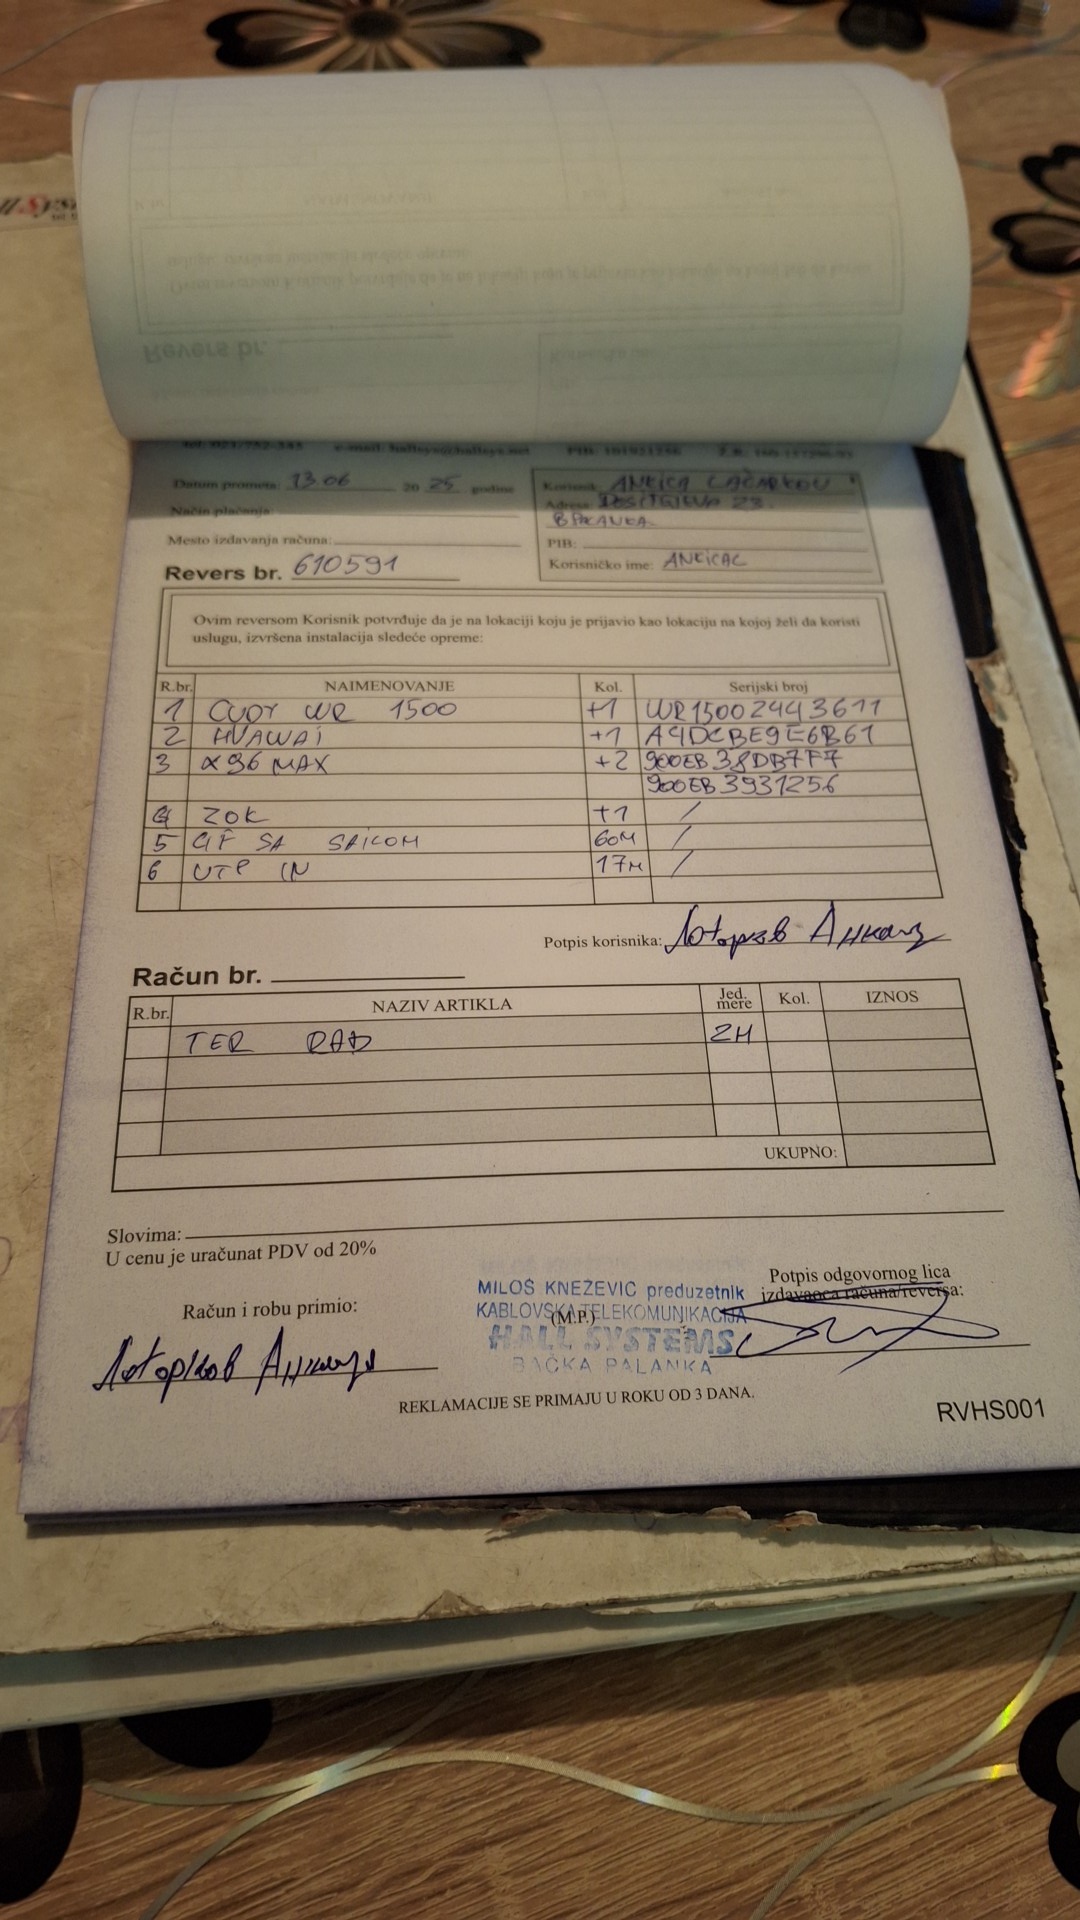 tel: 021-752-343 e-mail: hallsys@hallsys.net PIB: Ž.R.:
Datum prometa: 13.06 20 25 godine
Korisnik: ANKICA
Način plaćanja:
Adresa: 23.
Mesto izdavanja računa:
PIB:
Revers br. 610591
Korisničko ime: ANKICAC
Ovim reversom Korisnik potvrđuje da je na lokaciji koju je prijavio kao lokaciju na kojoj želi da koristi
uslugu, izvršena instalacija sledeće opreme:
R.br. NAIMENOVANJE Kol. Serijski broj
1 CUDY WR 1500 +1 WR15002443611
2 HUAWAI +1 A4DCBE9E6B61
3 X96 MAX +2 900EB38DB7F7
900EB3931256
4 ZOK +1 /
5 SA SAICOM 60M /
6 UTP IN 17M /
Potpis korisnika:
Račun br.
R.br. NAZIV ARTIKLA Jed. mere Kol. IZNOS
TER RAD 2H
UKUPNO:
Slovima:
U cenu je uračunat PDV od 20%
Račun i robu primio:
MILOŠ KNEŽEVIĆ preduzetnik
KABLOVSKA TELEKOMUNIKACIJA
(M.P.)
HALL SYSTEMS
BAČKA PALANKA
Potpis odgovornog lica
izdavaoca računa/reversa:
REKLAMACIJE SE PRIMAJU U ROKU OD 3 DANA.
RVHS001